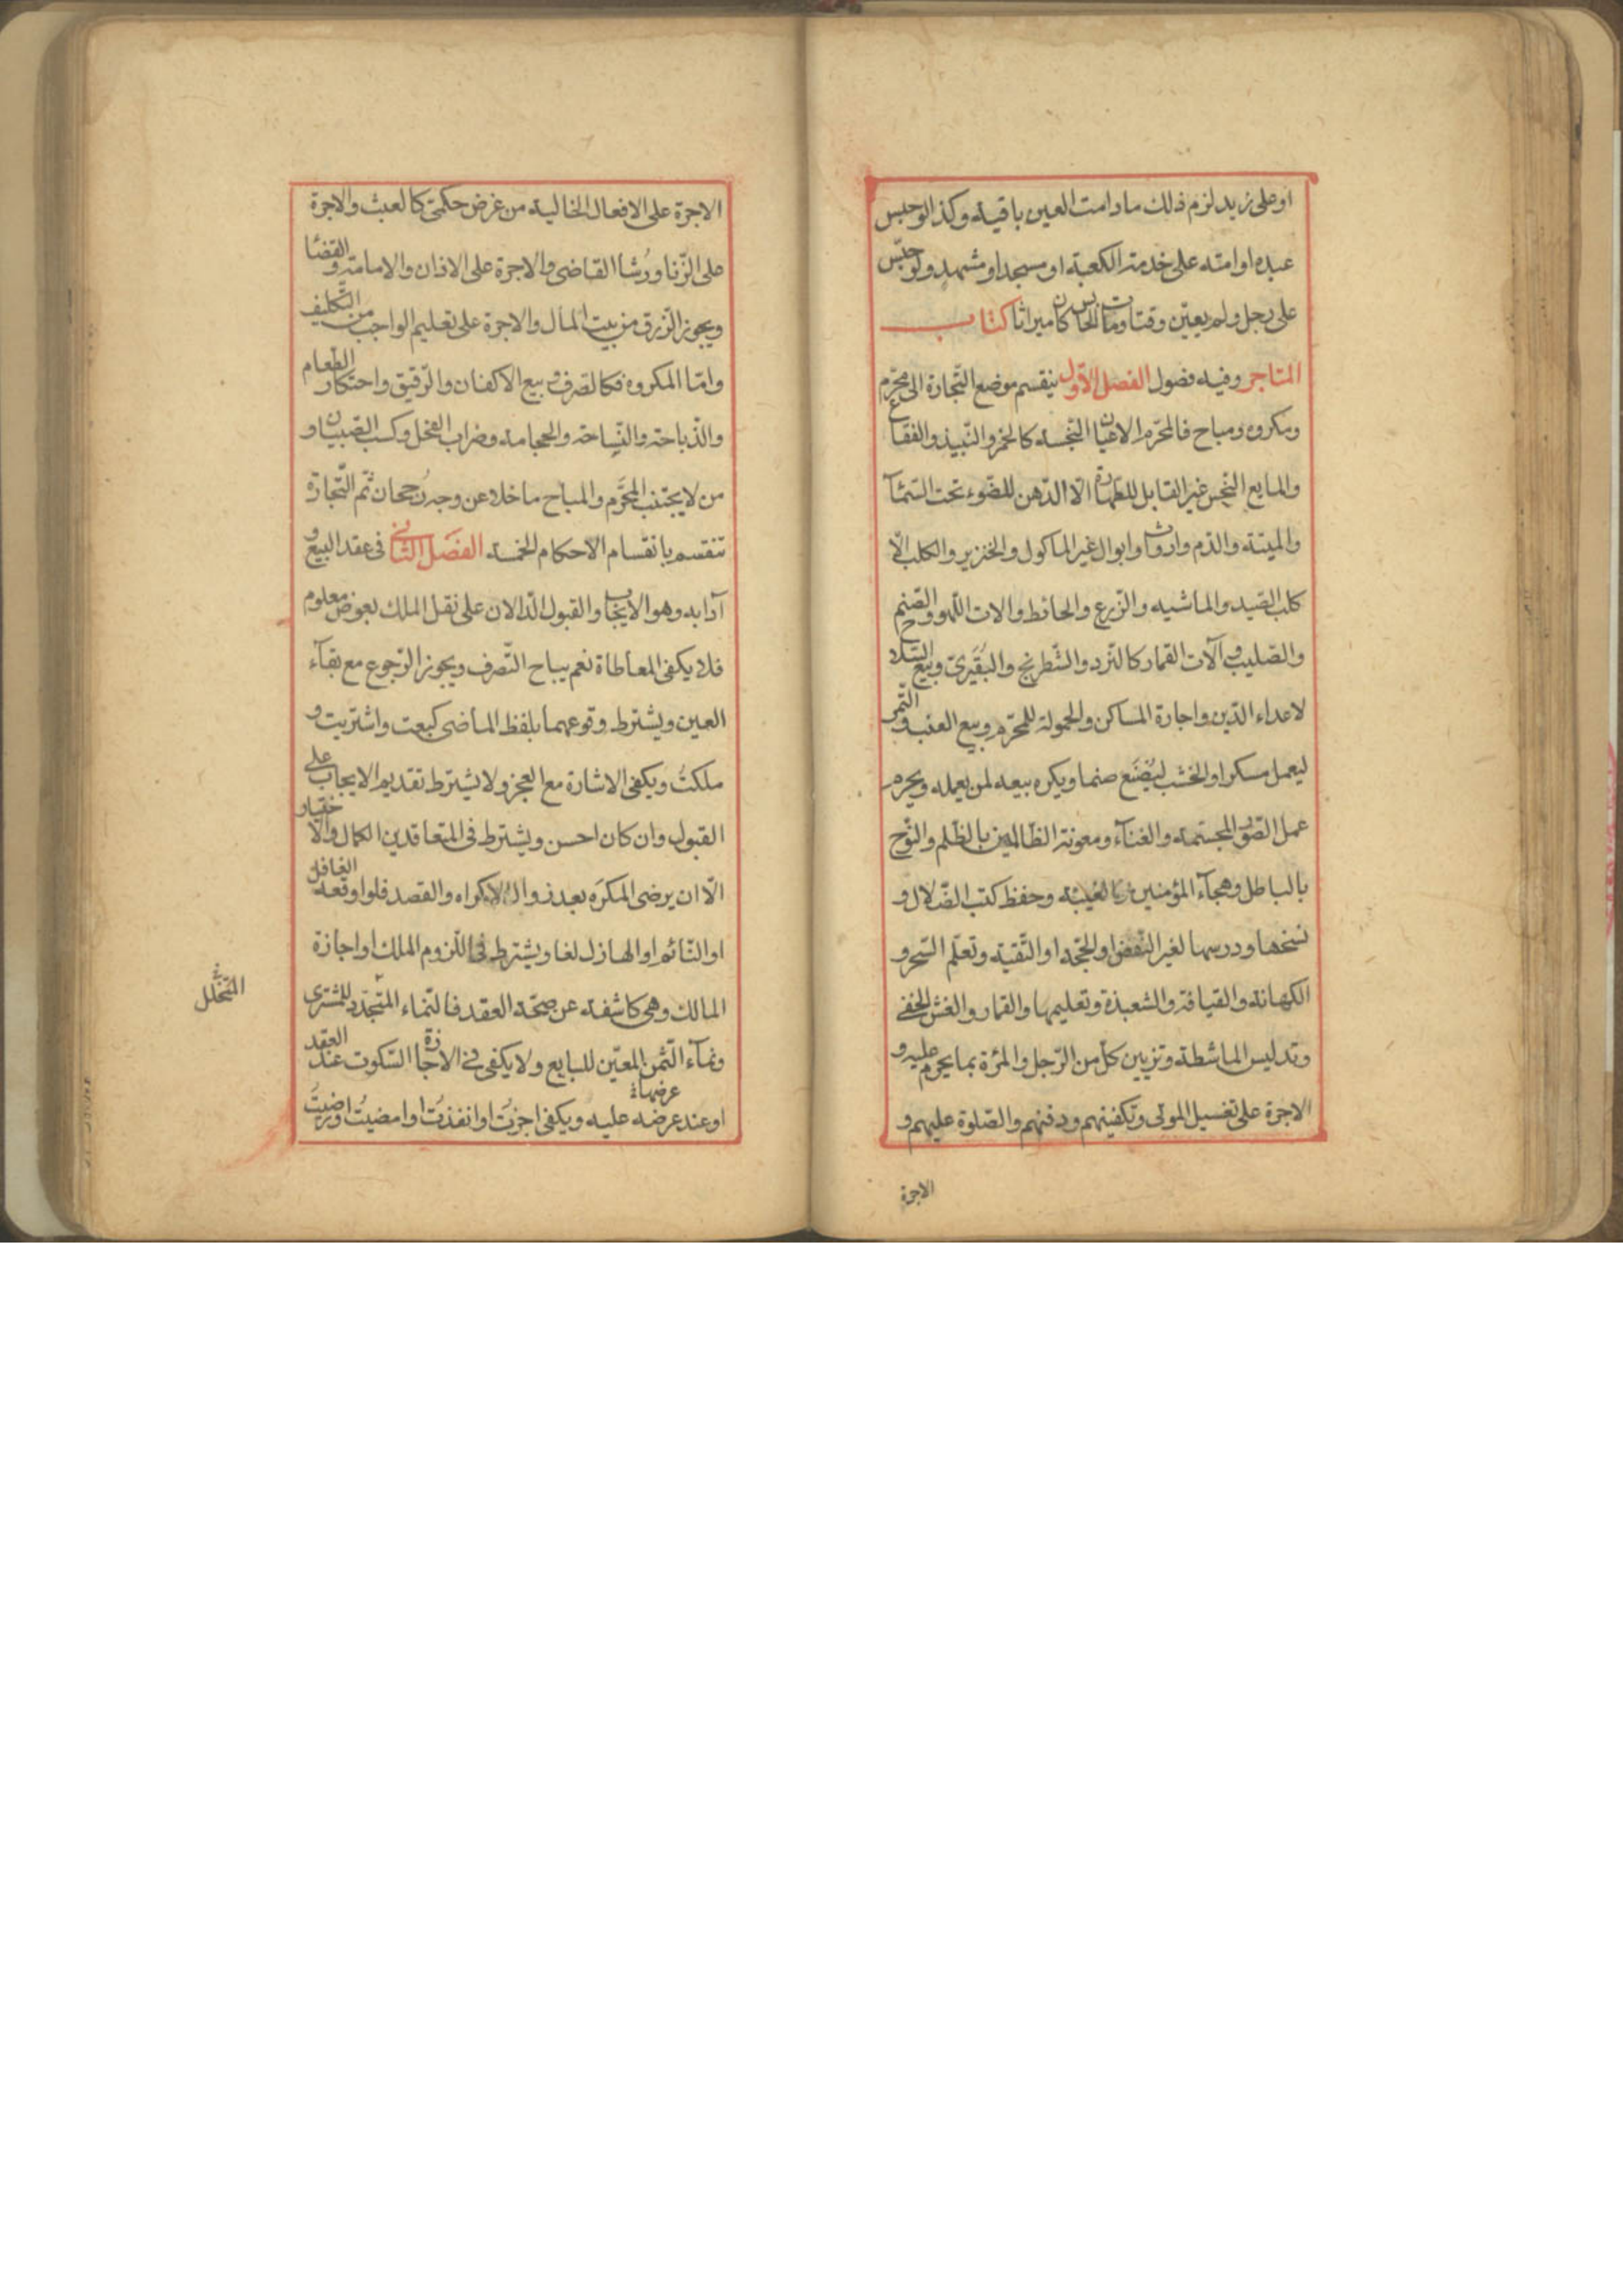 او على زيد لزم ذلك مادامت العين باقية وكذا لو حبس
عبده او امته على خدمة الكعبة او مسجد او مشهد ولو حبّس
على رجل ولم يعيّن وقتا ومات الحابس كان ميراثا كتاب
المتاجر وفيه فصول الفصل الاوّل ينقسم موضع التّجارة الى محرّم
ومكروه ومباح فالمحرّم الاعيان النّجسة كالخمر والنّبيذ والفقّاع
والمايع النّجس غير القابل للطّهارة الّا الدّهن للضّوء تحت السّماء
والميتة والدّم وارواث وابوال غير الماكول والخنزير والكلب الّا
كلب الصّيد والماشيه والزّرع والحائط والات اللّهو والصّنم
والصّليب وآلات القمار كالنّرد والشّطرنج والبُقَّيرىٰ وبيع السّلاح
لاعداء الدّين واجارة المساكن والحمولة للمحرّم وبيع العنب والتّمر
ليعمل مسكرا والخشب ليُصْنَع صنما ويكره بيعه لمن يعمله ويحرم
عمل الصّور المجسّمة والغناء ومعونة الظّالمين بالظّلم والنّوح
بالباطل وهجآء المؤمنين والغيبة وحفظ كتب الضّلال و
نسخها ودرسها لغير النّقض او الحجّة او التّقيّة وتعلّم السّحر و
الكهانة والقيافة والشعبذة وتعليمها والقمار والغشّ الخفى
وتدليس الماشطة وتزيين كلّ من الرّجل والمرئة بما يحرم عليه و
الاجرة على تغسيل الموتى وتكفينهم ودفنهم والصّلوة عليهم و
الاجرة
الاجرة على الافعال الخالية من غرض حكمىّ كالعبث والاجرة
على الزّنا ورُشا القاضى والاجرة على الاذان والامامة والقضا
ويجوز الرّزق من بيت المال والاجرة على تعليم الواجب من التّكليف
وامّا المكروه فكالصّرف وبيع الاكفان والرّقيق واحتكار الطّعام
والذّباحة والنّساجة والحجامة وضراب الفحل وكسب الصّبيان و
من لا يجتنب المحرّم والمباح ما خلا عن وجه رُجحان ثمّ التّجارة
تنقسم بانقسام الاحكام الخمسة الفصل الثّانى فى عقد البيع و
آدابه وهو الايجاب والقبول الدّالان على نقل الملك بعوض معلوم
فلا يكفى المعاطاة نعم يباح التّصرف ويجوز الرّجوع مع بقآء
العين ويشترط وقوعهما بلفظ الماضى كبعت واشتريت و
ملكتُ ويكفى الاشارة مع العجز ولا يشترط تقديم الايجاب على
القبول وان كان احسن ويشترط فى المتعاقدين الكمال والاختيار
الّا ان يرضى المكرَه بعد زوال الاكراه والقصد فلو اوقعه الغافل
او النّائم او الهازل لغا ويشترط فى اللّزوم الملك او اجازة
المالك وهى كاشفة عن صحّة العقد فالنّماء المتجدّد للمشترى
ونمآء الثّمن المعيّن للبايع ولا يكفى فى الاجازة السّكوت عند العقد
او عند عرضه عليه ويكفى اجزتُ او انفذتُ او امضيتُ او رضيتُ
عرضها
المتخلّل